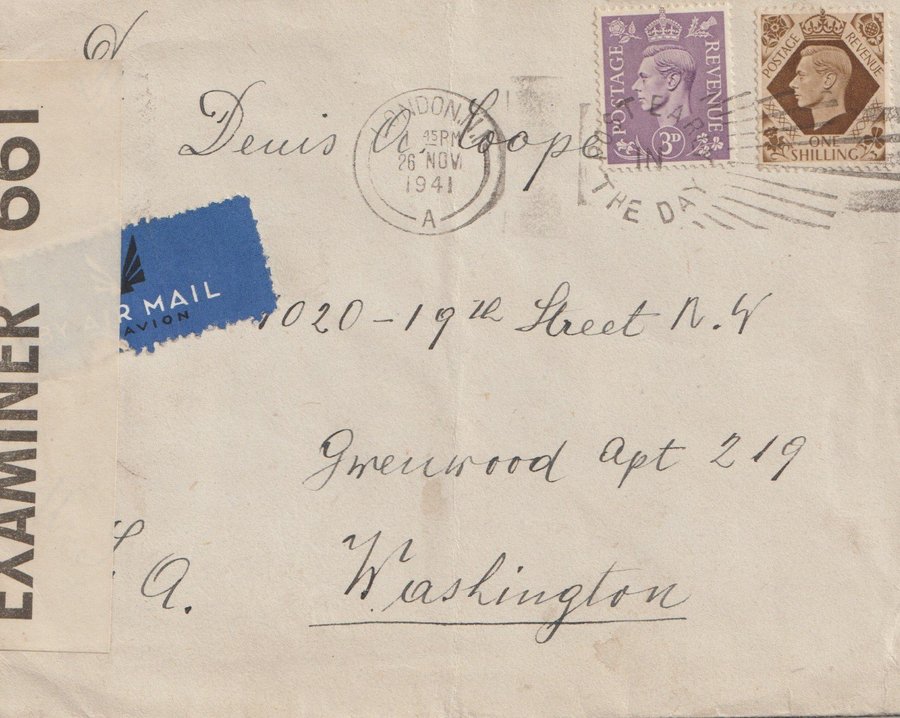 POSTAGE REVENUE
3D
POSTAGE REVENUE
ONE
SHILLING
LONDON
45PM
26 NOV
1941
A
POST EARLY
IN
THE DAY
Denis A. Coope
EXAMINER 661
R MAIL
AVION
1020-19th Street N.W
Gwenwood Apt 219
A. Washington